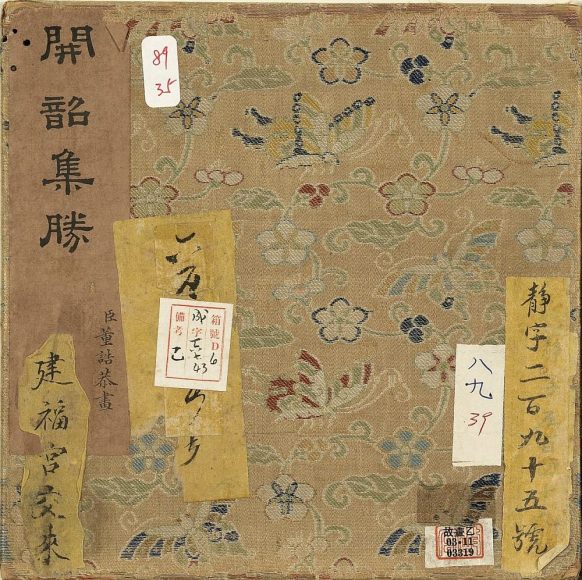 開韶集勝
臣董誥恭畫
建福宮交來
89
35
箱號D6
成字
備考
乙
八九
39
静字二百九十五號
故畫乙
03-11
03319